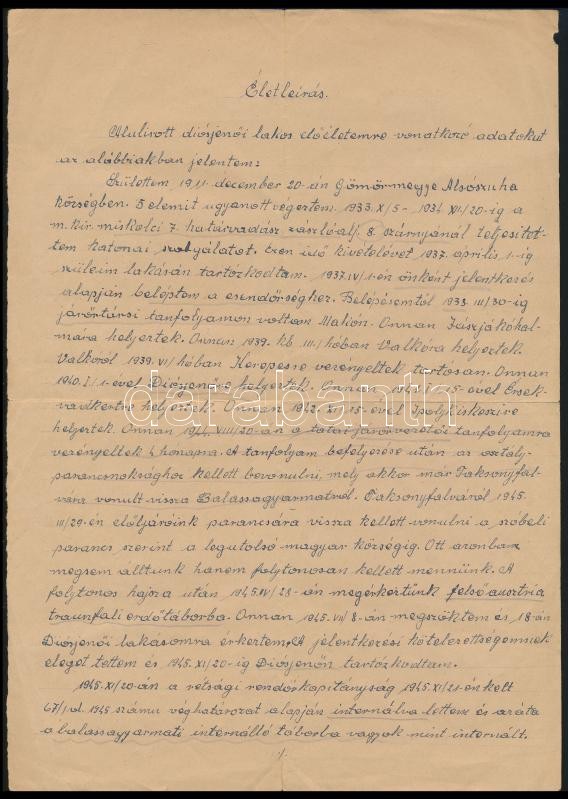 Életleírás.
Alulirott diósjenői lakos előéletemre vonatkozó adatokat
az alábbiakban jelentem:
Születtem 1911. december 20-án Gömörmegye Alsószuha
községben. 5 elemit ugyanott végeztem. 1933. X/5 - 1934 XII/20-ig a
m. kir. miskolci 7. határvadász zászlóalj. 8. szárnyánál teljesitet-
tem katonai szolgálatot. Ezen idő kivételével 1937. április 1-ig
szüleim lakásán tartózkodtam. 1937. IV/1-én önként jelentkezés
alapján beléptem a csendőrséghez. Belépésemtől 1938. III/30-ig
járőrtársi tanfolyamon voltam Makón. Onnan Jászjákóhal-
mára helyeztek. Onnan 1939. kb. III. hóban Valkóra helyeztek.
Valkóról 1939. VI/ hóban Kerepesre vezényeltek tartósan. Onnan
1940. I/1-ével Diósjenőre helyeztek. Onnan 15-ével Érsek-
vadkertre helyeztek. Onnan 1942. XI/15-ével Ipolykiskeszire
helyeztek. Onnan 1944. VIII/20-án a tatai járőrvezetői tanfolyamra
vezényeltek 4 hónapra. A tanfolyam befejezése után az osztály-
parancsnoksághoz kellett bevonulni, mely akkor már Taksonyfal-
vára vonult vissza Balassagyarmatról. Taksonyfalváról 1945.
III/29-én elöljáróink parancsára vissza kellett vonulni a szóbeli
parancs szerint a legutolsó magyar községig. Ott azonban
mégsem álltunk hanem folytonosan kellett mennünk. A
folytonos hajsza után 1945. IV/28-án megérkeztünk felső-ausztria
traunfali erdőtáborba. Onnan 1945. VII/8-án megszöktem és 18-án
Diósjenői lakásomra érkeztem. A jelentkezési kötelezettségemnek
eleget tettem és 1945. XI/20-ig Diósjenőn tartózkodtam.
1945. XI/20-án a rétsági rendőrkapitányság 1945. XI/21-én kelt
67/1.vl. 1945 számú véghatározat alapján internálva lettem és azóta
a balassagyarmati internáló táborba vagyok mint internált.
./.
darabanth